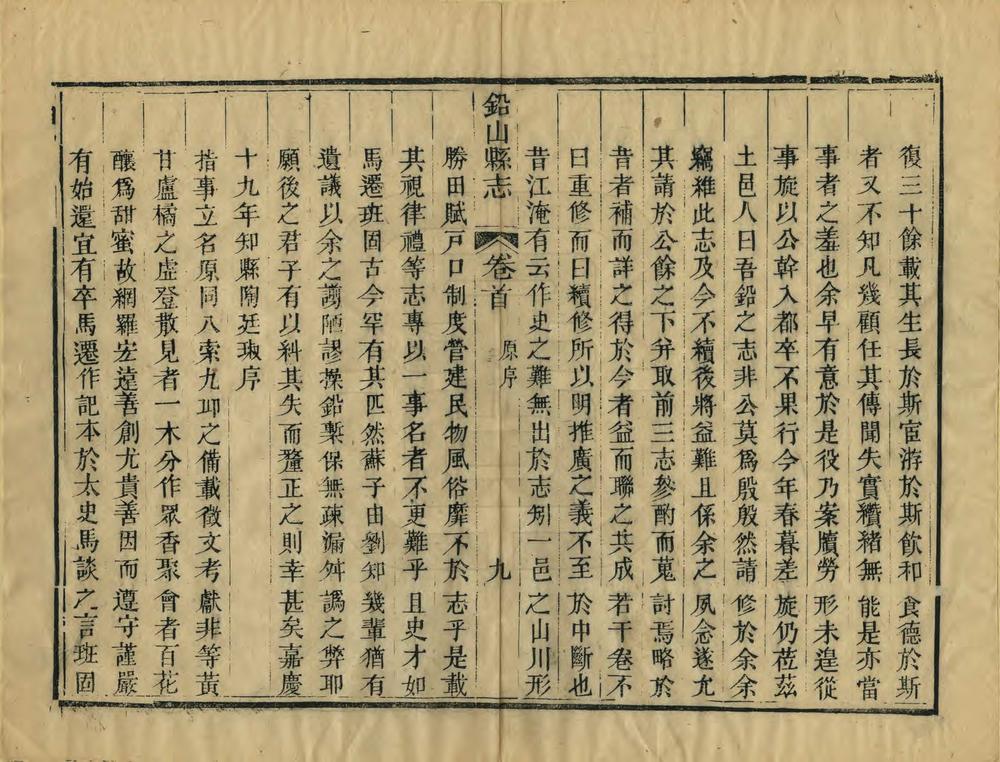 復三十餘載其生長於斯宦游於斯飲和食德於斯
者又不知凡幾顧任其傳聞失實纘緒無能是亦當
事者之羞也余早有意於是役乃案牘勞形未遑從
事旋以公幹入都卒不果行今年春暮差旋仍莅茲
土邑人曰吾鉛之志非公莫爲殷殷然請修於余余
竊維此志及今不續後將益難且係余之夙念遂允
其請於公餘之下弁取前三志參酌而蒐討焉略於
昔者補而詳之得於今者益而聯之共成若干卷不
曰重修而曰續修所以明推廣之義不至於中斷也
昔江淹有云作史之難無出於志矧一邑之山川形
鉛山縣志 卷首 原序 九
勝田賦戸口制度營建民物風俗靡不於志乎是載
其視律禮等志專以一事名者不更難乎且史才如
馬遷班固古今罕有其匹然蘇子由劉知幾輩猶有
遺議以余之謭陋謬操鉛槧保無疎漏舛譌之弊耶
願後之君子有以糾其失而釐正之則幸甚矣嘉慶
十九年知縣陶廷琡序
指事立名原同八索九邱之備載徵文考獻非等黃
甘盧橘之虛登散見者一木分作眾香聚會者百花
釀爲甜蜜故網羅宏遠善創尤貴善因而遵守謹嚴
有始還宜有卒馬遷作記本於太史馬談之言班固